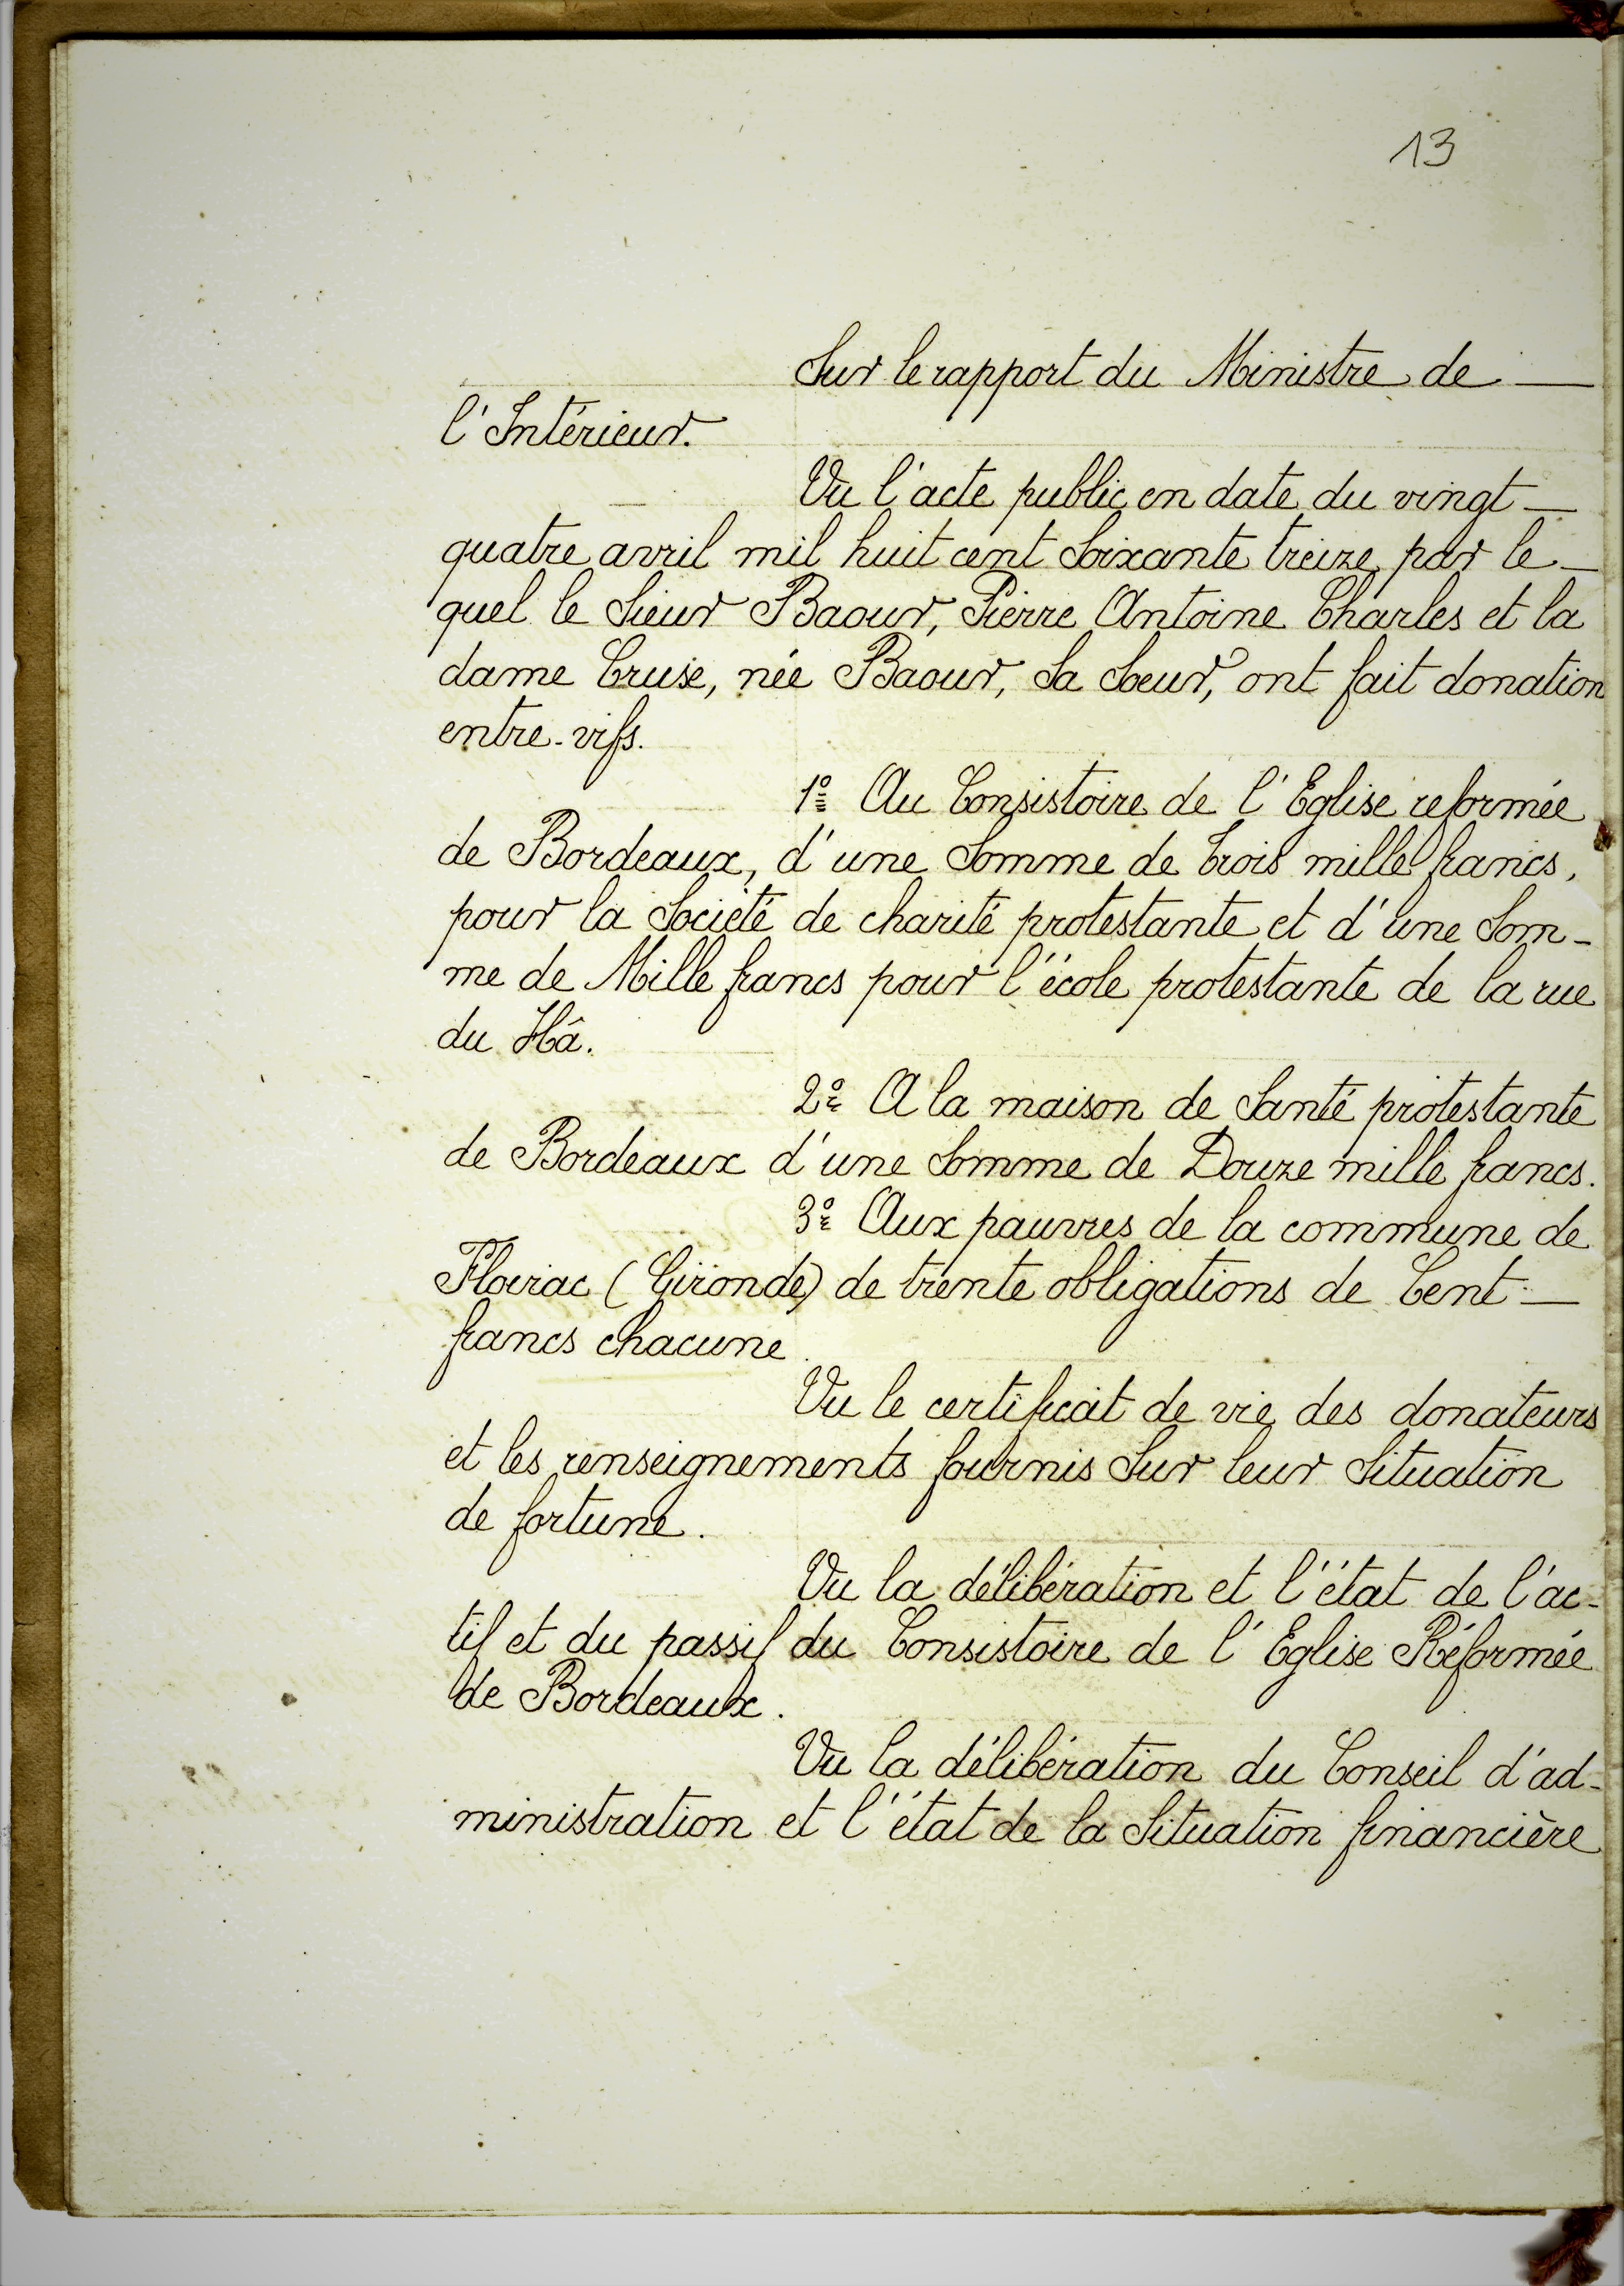 13
Sur le rapport du Ministre de —
l'Intérieur.
Vu l'acte public en date du vingt —
quatre avril mil huit cent soixante treize, par le -
quel le Sieur Baour, Pierre Antoine Charles et la
dame Cruse, née Baour, sa sœur, ont fait donation
entre-vifs.
1º Au Consistoire de l'Eglise reformée
de Bordeaux, d'une somme de trois mille francs,
pour la Société de charité protestante et d'une som-
me de Mille francs pour l'école protestante de la rue
du Hâ.
2º A la maison de Santé protestante
de Bordeaux d'une somme de Douze mille francs.
3º Aux pauvres de la commune de
Floirac (Gironde) de trente obligations de Cent —
francs chacune.
Vu le certificat de vie des donateurs
et les renseignements fournis sur leur situation
de fortune.
Vu la délibération et l'état de l'ac-
tif et du passif du Consistoire de l'Eglise Réformée
de Bordeaux.
Vu la délibération du Conseil d'ad-
ministration et l'état de la situation financière